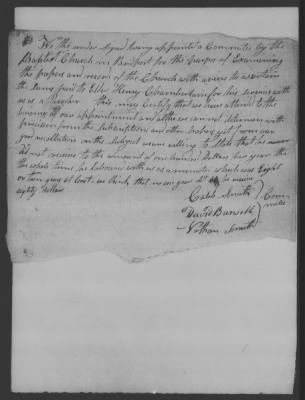 We the under signed being appointed a Commitee by the
Baptist Church in Bridport for the purpose of Examening
the papers and records of the Church with a view to ascertain
the sums paid to Elder Henry Chamberlain for his services with
us as a Preacher this may Certify that we have attend to the
buseness of our appointment and altho we can not determen with
precision from the subscriptions and other papers yet from our
good recollection on the subject we are willing to State that he never
did not receive to the amount of one hundred Dollars pr year for the
the whole time he labioured with us as a minister which was Eight
or ten years at least we think that in one year he receive
eighty dollars
Caleb Smith
David Barwell
Nathan Smith
Com
mitee